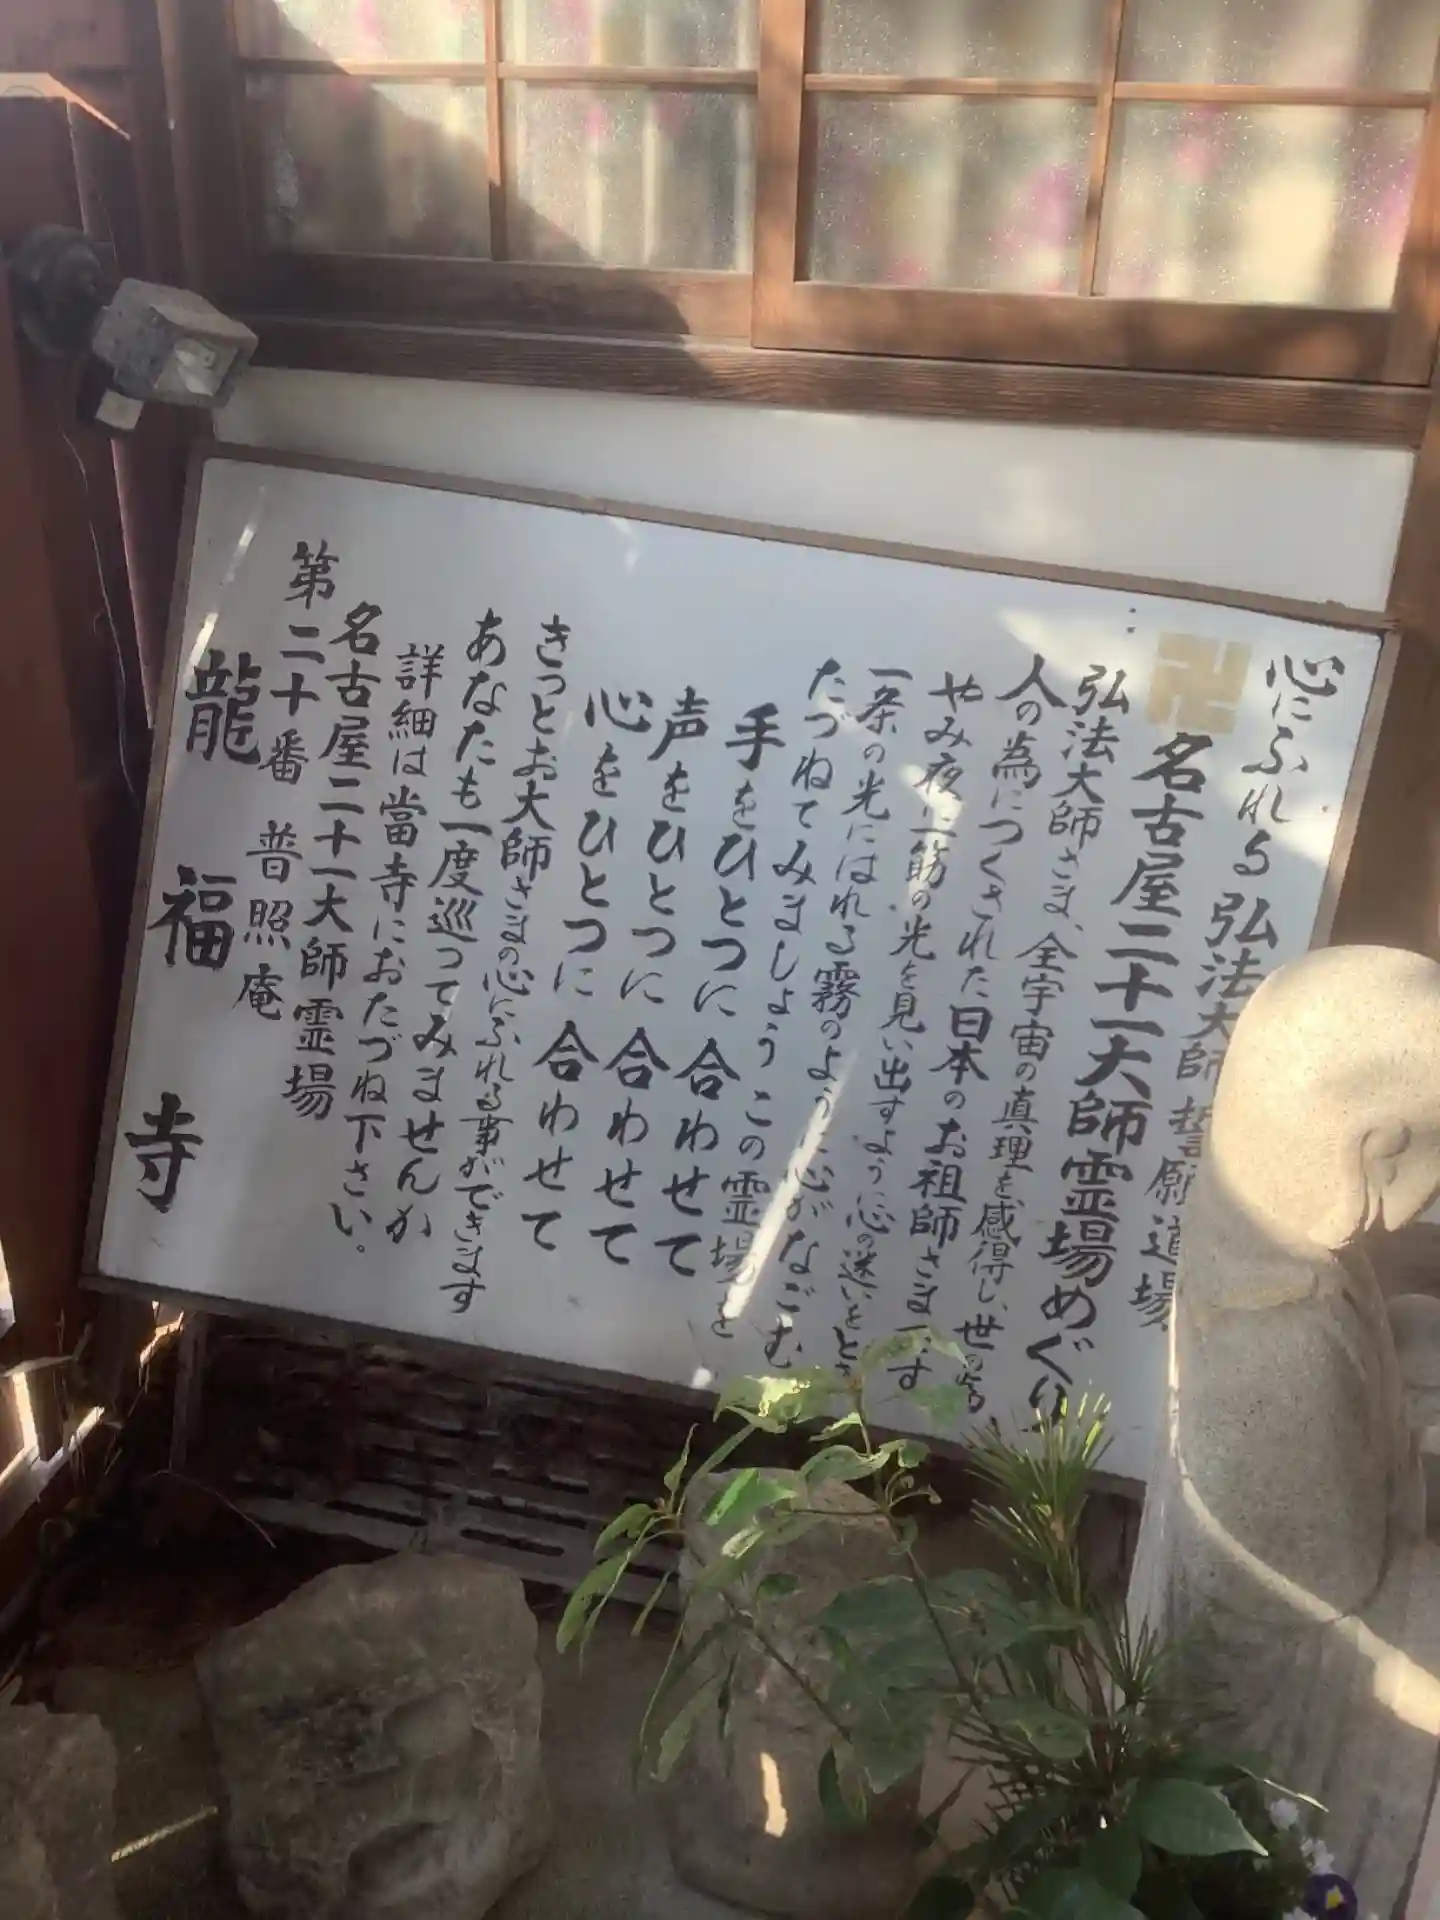 心にふれる 弘法大師 誓願道場
卍 名古屋二十一大師霊場めぐり
弘法大師さま、全宇宙の真理を感得し、世の為、
人の為につくされた日本のお祖師さまです
やみ夜に一筋の光を見い出すように心の迷いをとき
一条の光にはれる霧のように心がなごむ
たづねてみましょう この霊場を
手をひとつに 合わせて
声をひとつに 合わせて
心をひとつに 合わせて
きっとお大師さまの心にふれる事ができます
あなたも一度巡ってみませんか
詳細は當寺におたづね下さい。
名古屋二十一大師霊場
第二十番 普照庵
龍福寺